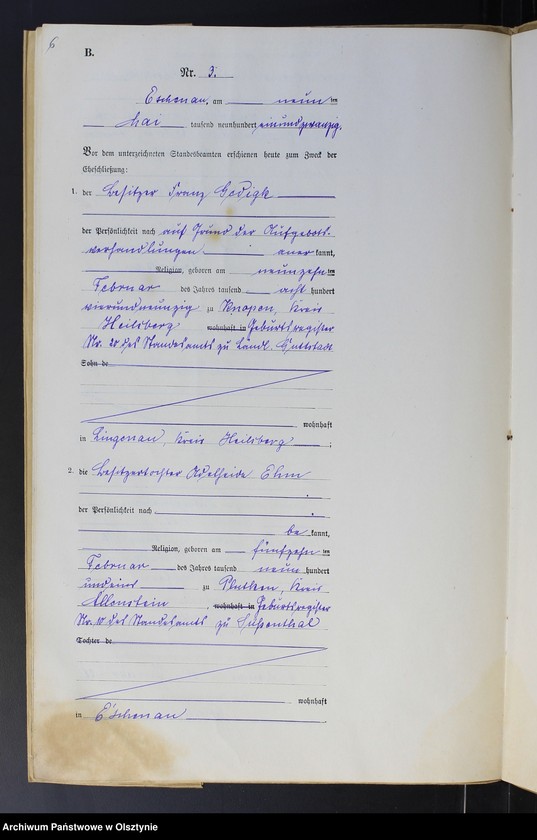 6
B.
Nr. 3.
Eschenau, am neunten
Mai tausend neunhundert einundzwanzig.
Vor dem unterzeichneten Standesbeamten erschienen heute zum Zweck der
Eheschließung:
1. der Besitzer Franz Gedigk
der Persönlichkeit nach auf Grund der Aufgebots-
verhandlungen anerkannt,
Religion, geboren am neunzehnten
Februar des Jahres tausend acht hundert
vierundneunzig zu Knopen, Kreis
Heilsberg wohnhaft in Geburtsregister
Nr. 28 des Standesamts zu Ländl. Guttstadt
Sohn de
wohnhaft
in Lingenau, Kreis Heilsberg ;
2. die Besitzertochter Adelheide Ehm
der Persönlichkeit nach
be kannt,
Religion, geboren am fünfzehnten
Februar des Jahres tausend neun hundert
undeins zu Plutken, Kreis
Allenstein , wohnhaft in Geburtsregister
Nr. 10 des Standesamts zu Süssenthal
Tochter de
wohnhaft
in Eschenau
Archiwum Państwowe w Olsztynie